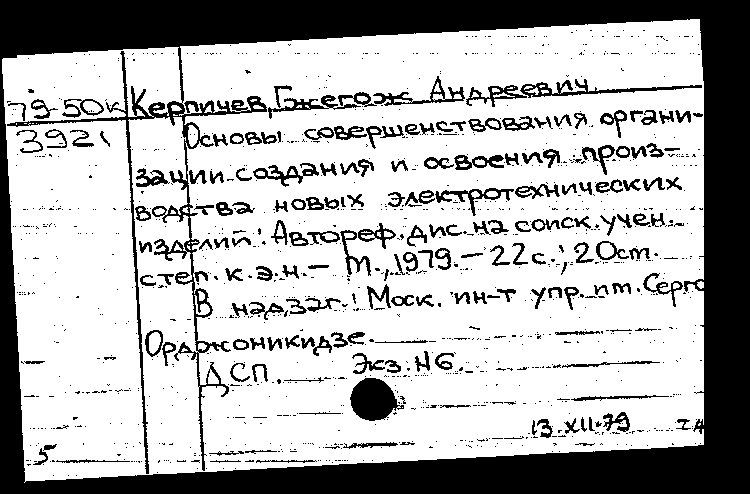 79-50к Керпичев, Гжегож Андреевич.
3921 Основы совершенствования органи-
зации создания и освоения произ-
водства новых электротехнических
изделий: Автореф. дис. на соиск. учен.
степ. к. э. н. – М., 1979. – 22 с.; 20 см.
В надзаг.: Моск. ин-т упр. им. Серго
Орджоникидзе.
ДСП. Экз. № 6.
13.XII.79
5